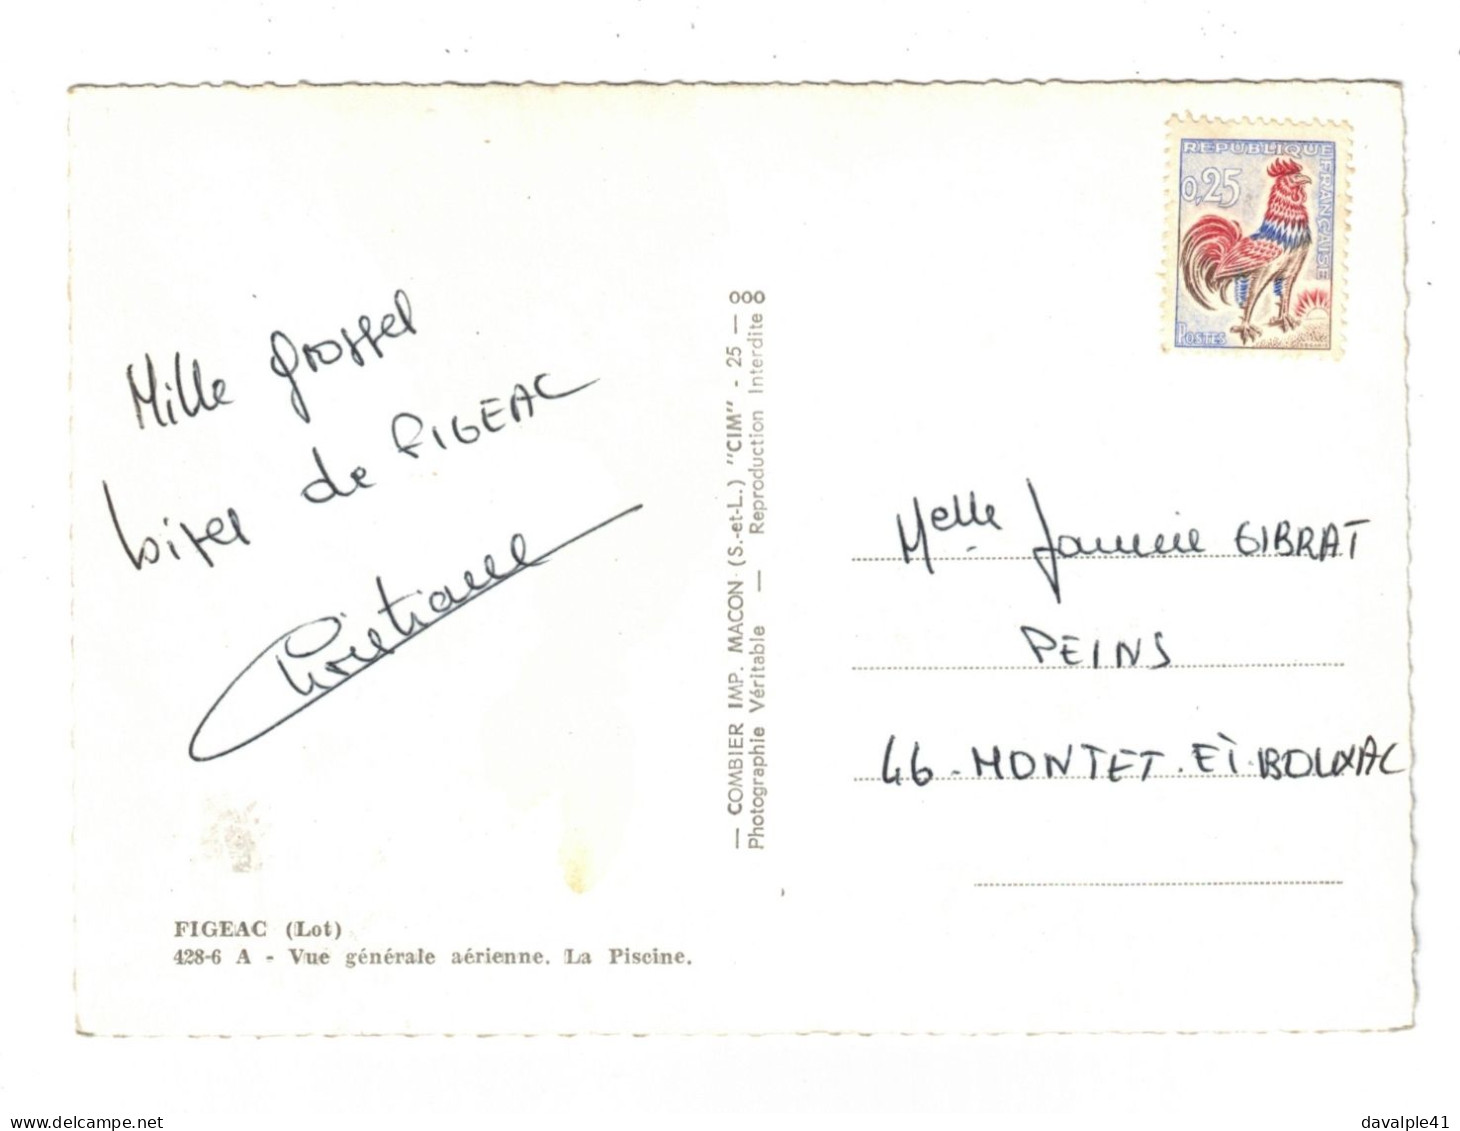 REPUBLIQUE FRANÇAISE
0,25
POSTES
Mille grosses
bises de FIGEAC
Christiane
— COMBIER IMP. MACON (S.-et-L.) "CIM" - 25 — 000
Photographie Véritable — Reproduction Interdite
Melle Jannine GIBRAT
PEINS
46 - MONTET. ET. BOUXAL
FIGEAC (Lot)
428-6 A - Vue générale aérienne. La Piscine.
delcampe.net
davalple41